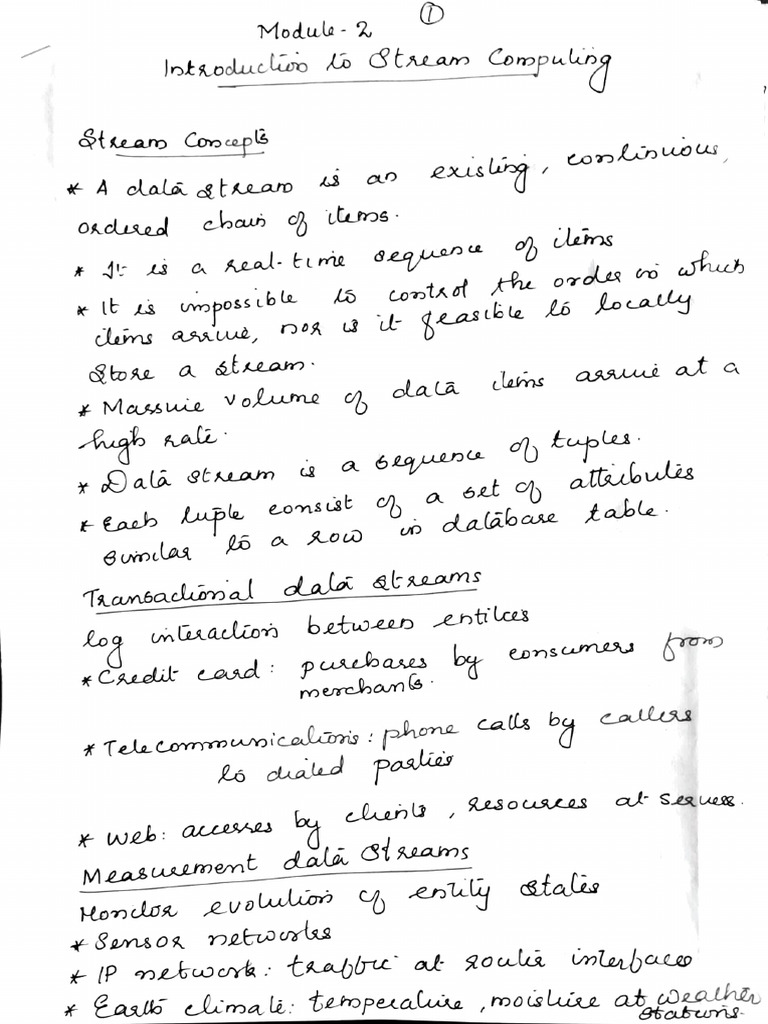 ①
Module-2
Introduction to Stream Computing
Stream Concepts
* A data stream is an existing, continuous,
ordered chain of items.
* It is a real-time sequence of items
* It is impossible to control the order in which
items arrive, nor is it feasible to locally
store a stream.
* Massive volume of data items arrive at a
high rate.
* Data stream is a sequence of tuples.
* Each tuple consist of a set of attributes
similar to a row in database table.
Transactional data streams
log interaction between entities
* Credit card: purchases by consumers from
merchants.
* Telecommunications: phone calls by callers
to dialed parties
* Web: accesses by clients, resources at servers.
Measurement data streams
Monitor evolution of entity states
* Sensor networks
* IP network: traffic at router interfaces
* Earth climate: temperature, moisture at weather
stations.